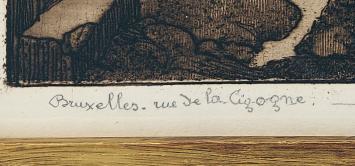 Bruxelles. rue de la Cigogne.